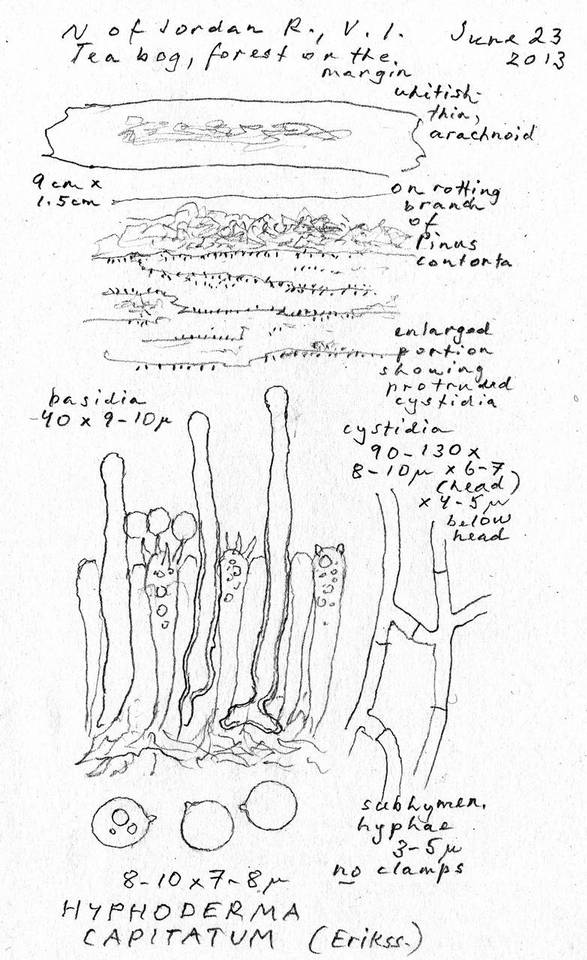 N of Jordan R., V. I. June 23
Tea bog, forest on the 2013
margin
whitish
thin,
arachnoid
9 cm x
1.5 cm
on rotting
branch
of
Pinus
contorta
enlarged
portion
showing
protruded
cystidia
basidia
40 x 9-10µ
cystidia
90-130x
8-10µ x 6-7
(head)
x 4-5µ
below
head
subhymen.
hyphae
3-5µ
no clamps
8-10x7-8µ
HYPHODERMA
CAPITATUM (Erikss.)